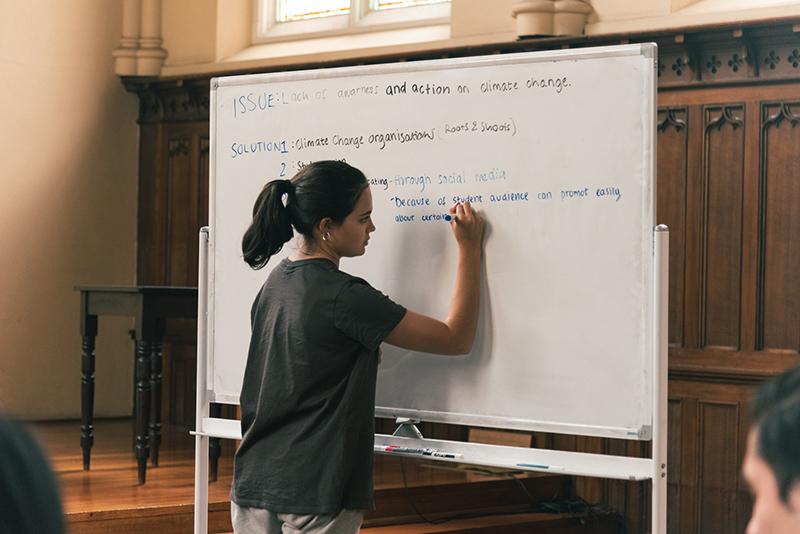 ISSUE: Lack of awarness and action on climate change.
SOLUTION 1: Climate Change organisations (Roots & Shoots)
2:
through social media
"Because of student audience can promot easily
about certain